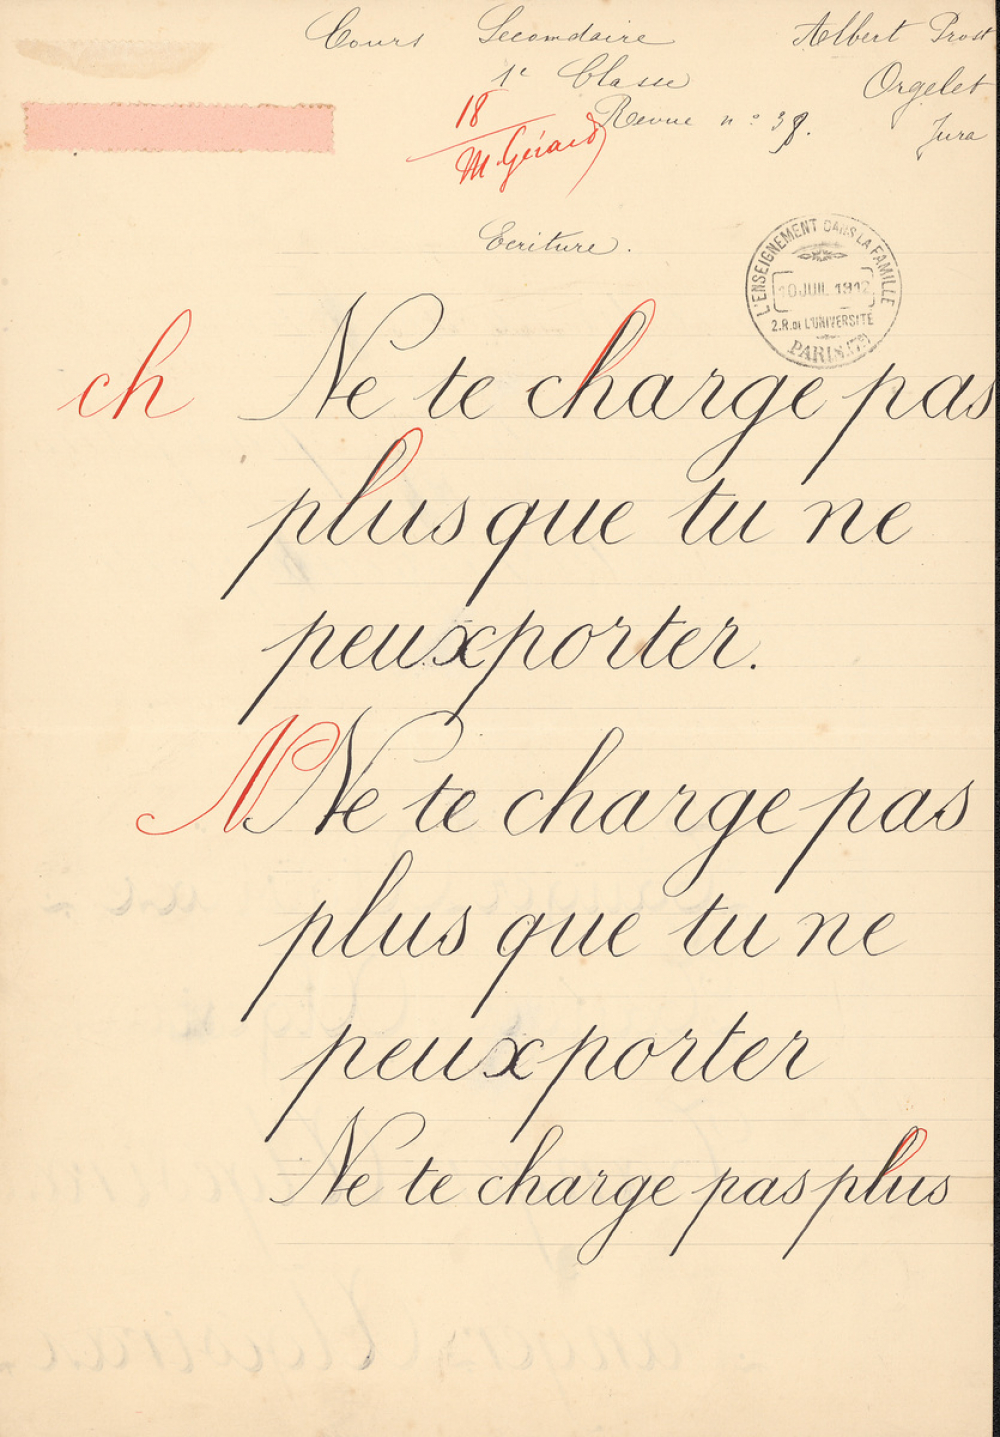 Cours Secondaire Albert Prost
1e Classe Orgelet
18 Revue n° 38. Jura
M Gérard
Ecriture.
L'ENSEIGNEMENT DANS LA FAMILLE
10 JUIL 1912
2.R. de L'UNIVERSITÉ
PARIS (7e)
ch Ne te charge pas
plus que tu ne
peux porter.
N Ne te charge pas
plus que tu ne
peux porter
Ne te charge pas plus